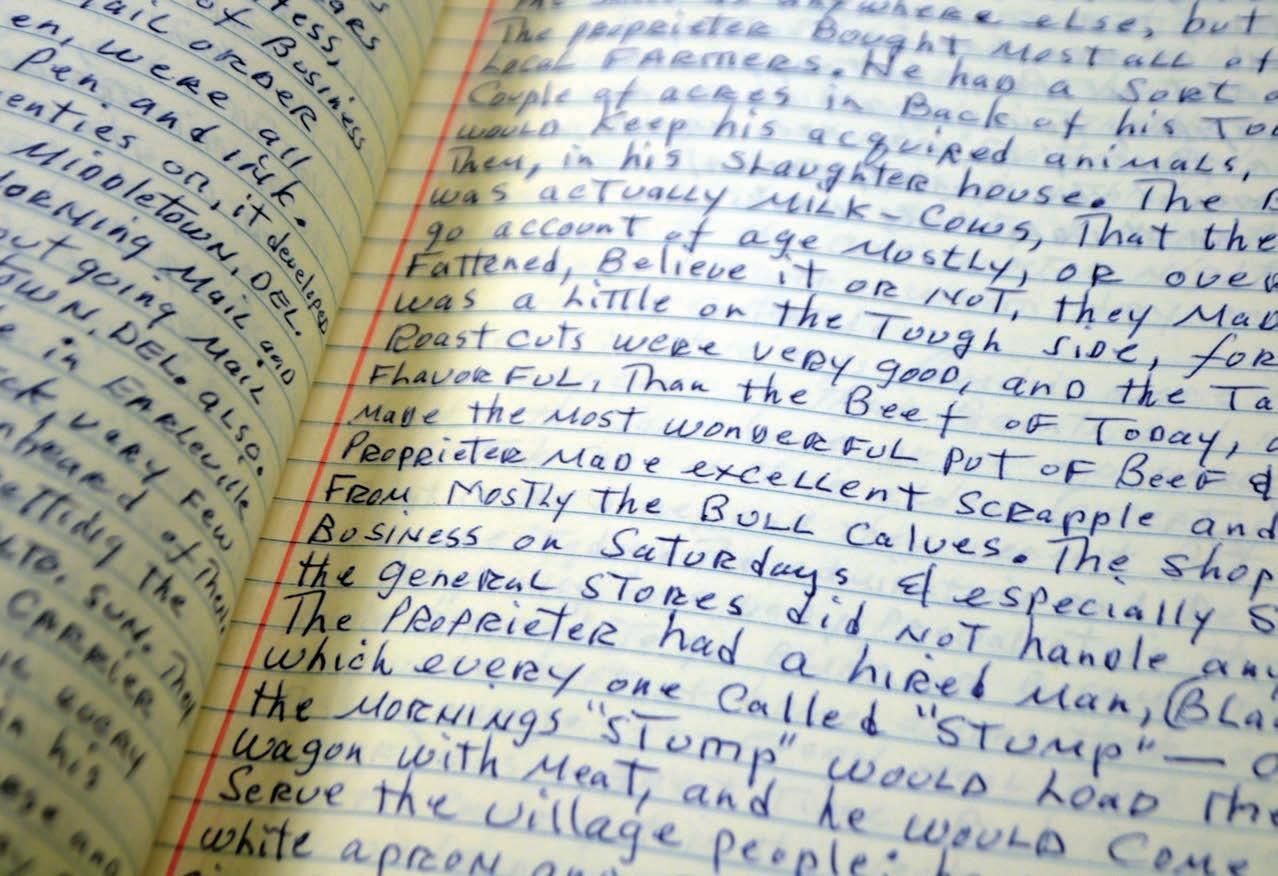 ess,
of Business
AIL ORDER
en, were all
Pen and ink.
enties on, it developed
MIDDLETOWN, DEL.
ORNING MAIL AND
out going MAIL
TOWN, DEL. also.
e in EARLEVILLE
ck, very Few
nheard of Them.
etting the
LTO. SUN. They
CARRIER
every
in his
anywhere else, but
The proprieter Bought Most all of
Local FARMERS. He had a Sort
Couple of acres in Back of his To
would keep his acquired animals,
Then, in his Slaughter house. The B
was actually MILK-Cows, That the
go account of age Mostly, or over
Fattened, Believe it or NOT, they Mad
was a little on the Tough side, for
Roast cuts were very good, and the Ta
FlavorFul, Than the Beef of Today,
Made the most wonderFul Pot of BeeF &
Proprieter Made excellent Scrapple and
From Mostly the Bull Calves. The shop
Business on Saturdays & especially S
the general Stores did not handle any
The Proprieter had a hired Man, (Bla
which every one Called "STUMP" —
the MORNINGS "STUMP" would Load The
Wagon with Meat, and he would Come
Serve the village people;
white apron and